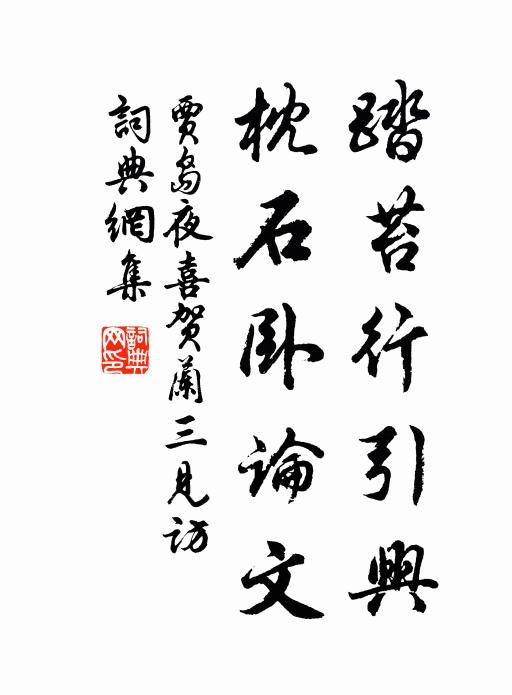 踏苔行引興
枕石卧論文
賈島夜喜賀蘭三見訪
詞典網集
詞典网印